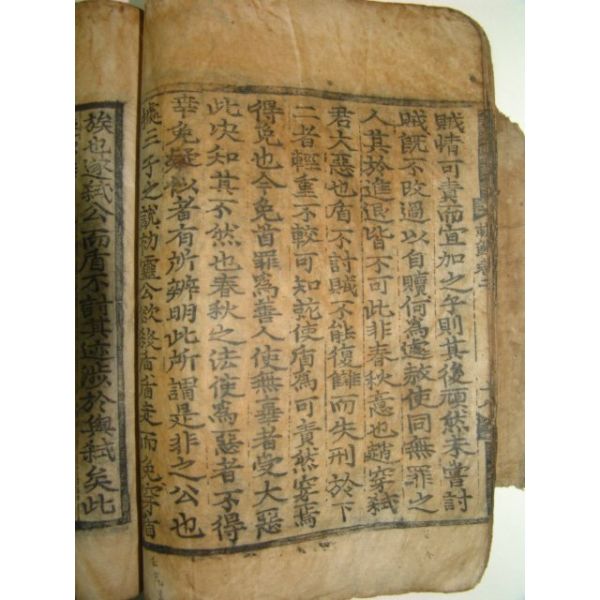 賊情可責而宜加之乎則其後頑然未嘗討
賊旣不改過以自贖何為遽赦使同無罪之
人其於進退皆不可此非春秋意也趙穿弒
君大惡也盾不討賊不能復讎而失刑於下
二者輕重不較可知就使盾爲可責然穿焉
得免也今免首罪爲善人使無辜者受大惡
此决知其不然也春秋之法使爲惡者不得
幸免疑似者有所辨明此所謂是非之公也
據三子之說初靈公欲殺盾盾走而免穿盾
族也遂弒公而盾不討其迹涉於與弒矣此